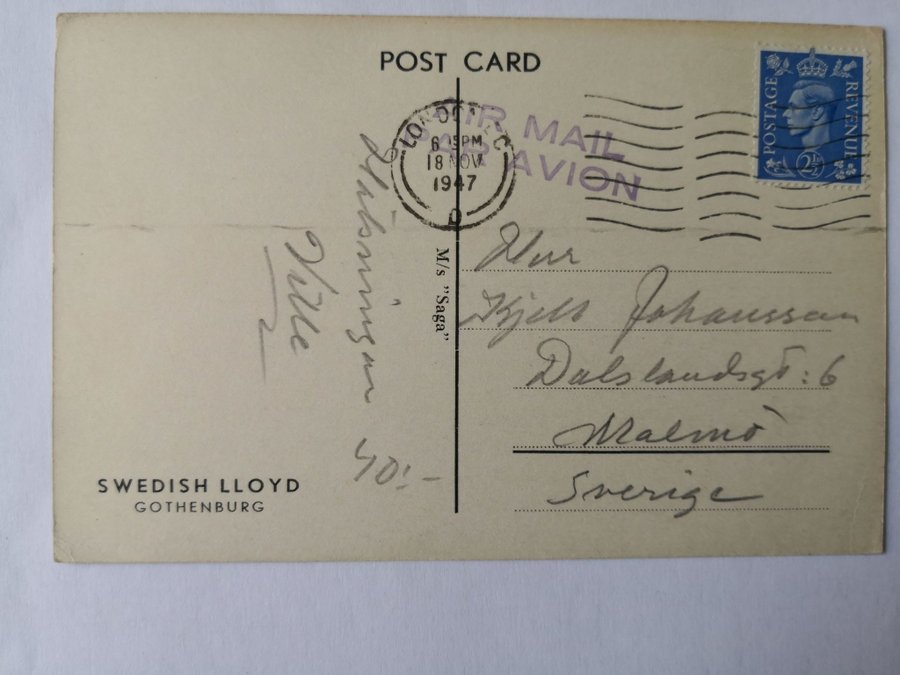 POST CARD
AIR MAIL
PAR AVION
LONDON E.C
6 15PM
18 NOV
1947
D
POSTAGE
REVENUE
2½
Hälsningar
Ville
M/s "Saga"
Herr
Kjell Johansson
Dalslandsgt: 6
Malmö
Sverige
40:-
SWEDISH LLOYD
GOTHENBURG